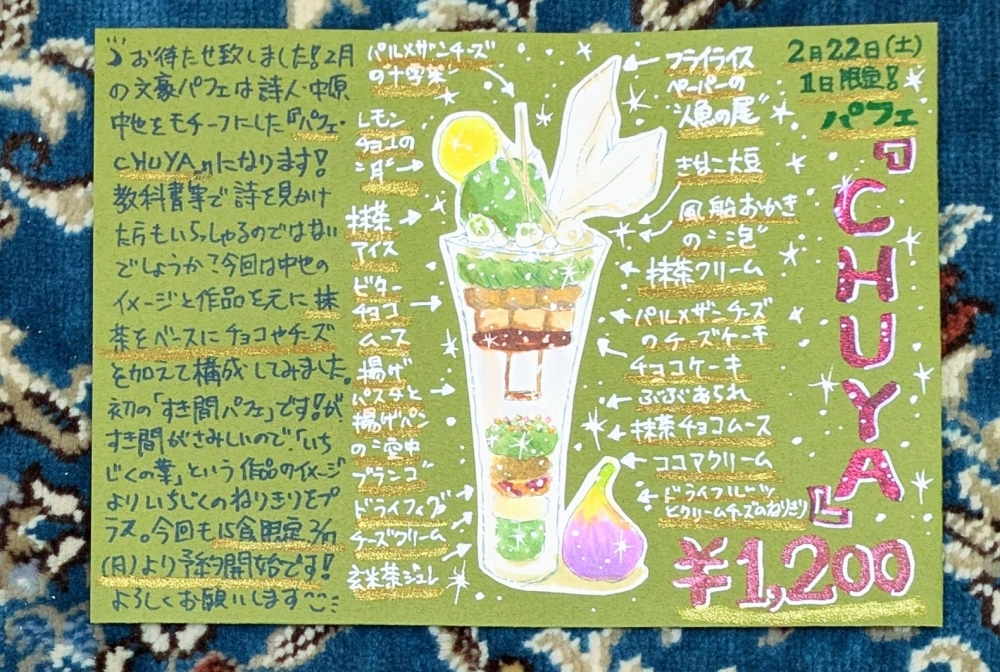 お待たせ致しました!2月
の文豪パフェは詩人・中原
中也をモチーフにした『パフェ・
CHUYA』になります!
教科書等で詩を見かけ
た方もいらっしゃるのではない
でしょうか?今回は中也の
イメージと作品を元に抹
茶をベースにチョコやチーズ
を加えて構成してみました。
初の「すき間パフェ」です!が
すき間がさみしいので「いち
じくの葉」という作品のイメージ
よりいちじくのねりきりをプ
ラス。今回も15食限定2/17
(月)より予約開始です!
よろしくお願いします
パルメザンチーズ
の十字架
レモン
チョコの
"月"
抹茶
アイス
ビター
チョコ
ムース
揚げ
パスタと
揚げパン
の"空中
ブランコ"
ドライフィグ
チーズクリーム
玄米茶ジュレ
フライライス
ペーパーの
"人魚の尾"
きなこ大豆
風船おかき
の"泡"
抹茶クリーム
パルメザンチーズ
のチーズケーキ
チョコケーキ
ぶぶあられ
抹茶チョコムース
ココアクリーム
ドライフルーツ
とクリームチーズのねりきり
2月22日(土)
1日限定!
パフェ
『CHUYA』
¥1,200